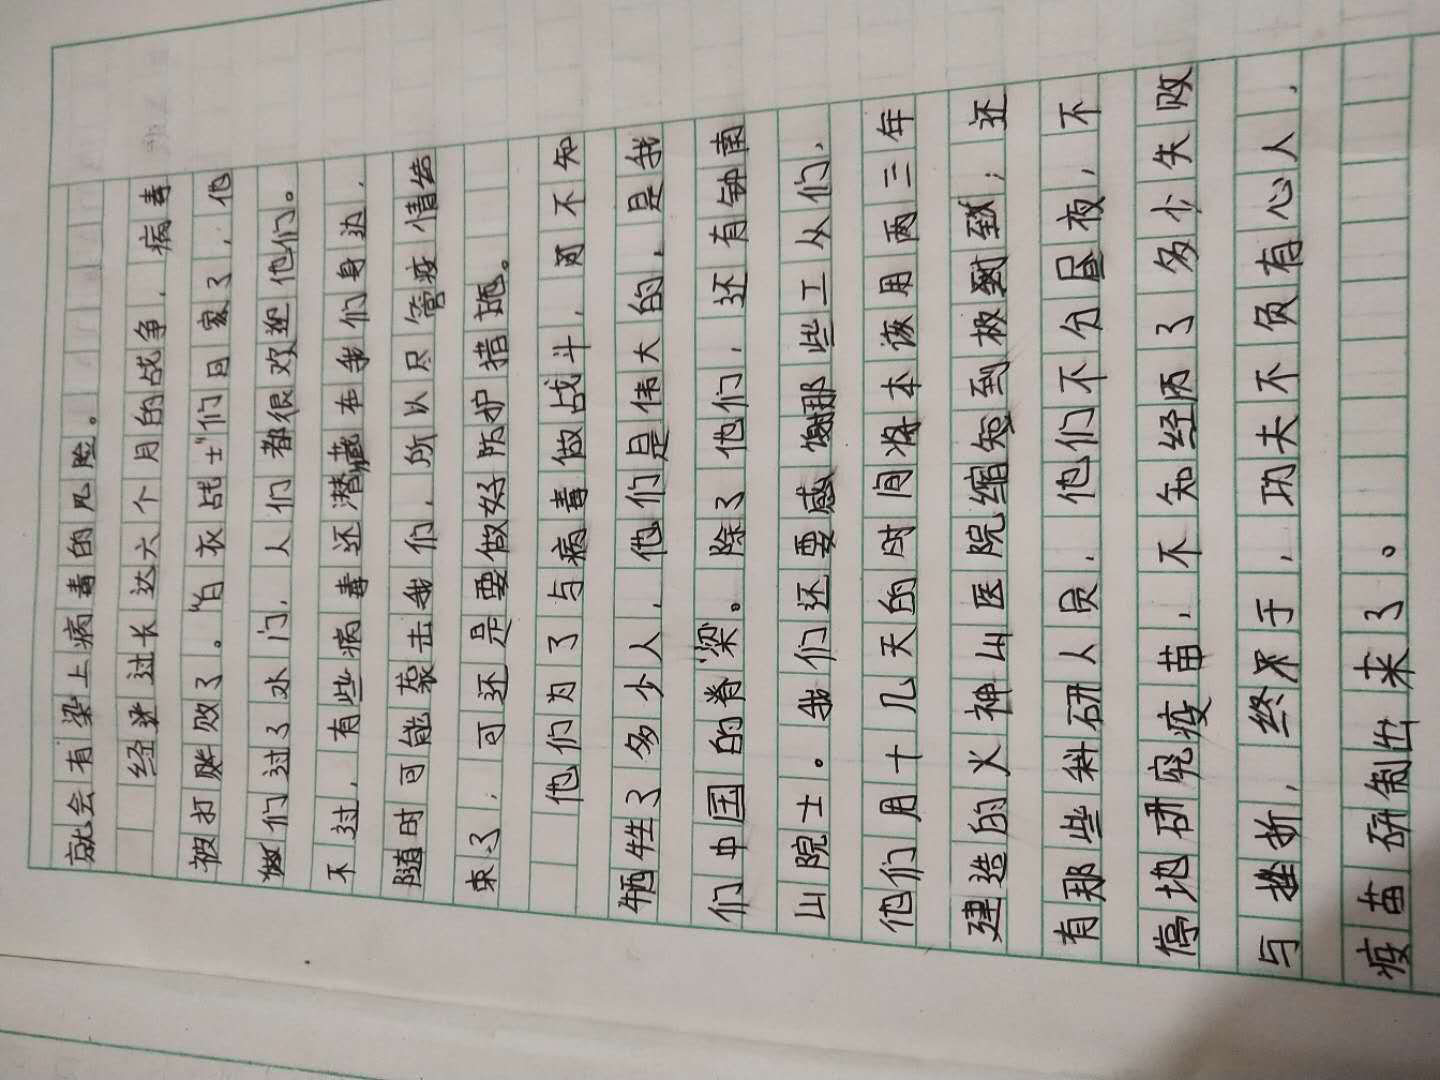 就会有染上病毒的风险。
经过长达六个月的战争,病毒
被打败了。"白衣战士"们回家了,他
们过了水门,人们都很欢迎他们。
不过,有些病毒还潜藏在我们身边,
随时可能袭击我们,所以尽管疫情结
束了,可还是要做好防护措施。
他们为了与病毒做战斗,而不知
牺牲了多少人,他们是伟大的,是我
们中国的脊梁。除了他们,还有钟南
山院士。我们还要感谢那些工从们,
他们用十几天的时间将本该用两三年
建造的火神山医院缩短到极致;还
有那些科研人员,他们不分昼夜,不
停地研究疫苗,不知经历了多少失败
与挫折,终于,功夫不负有心人,
疫苗研制出来了。